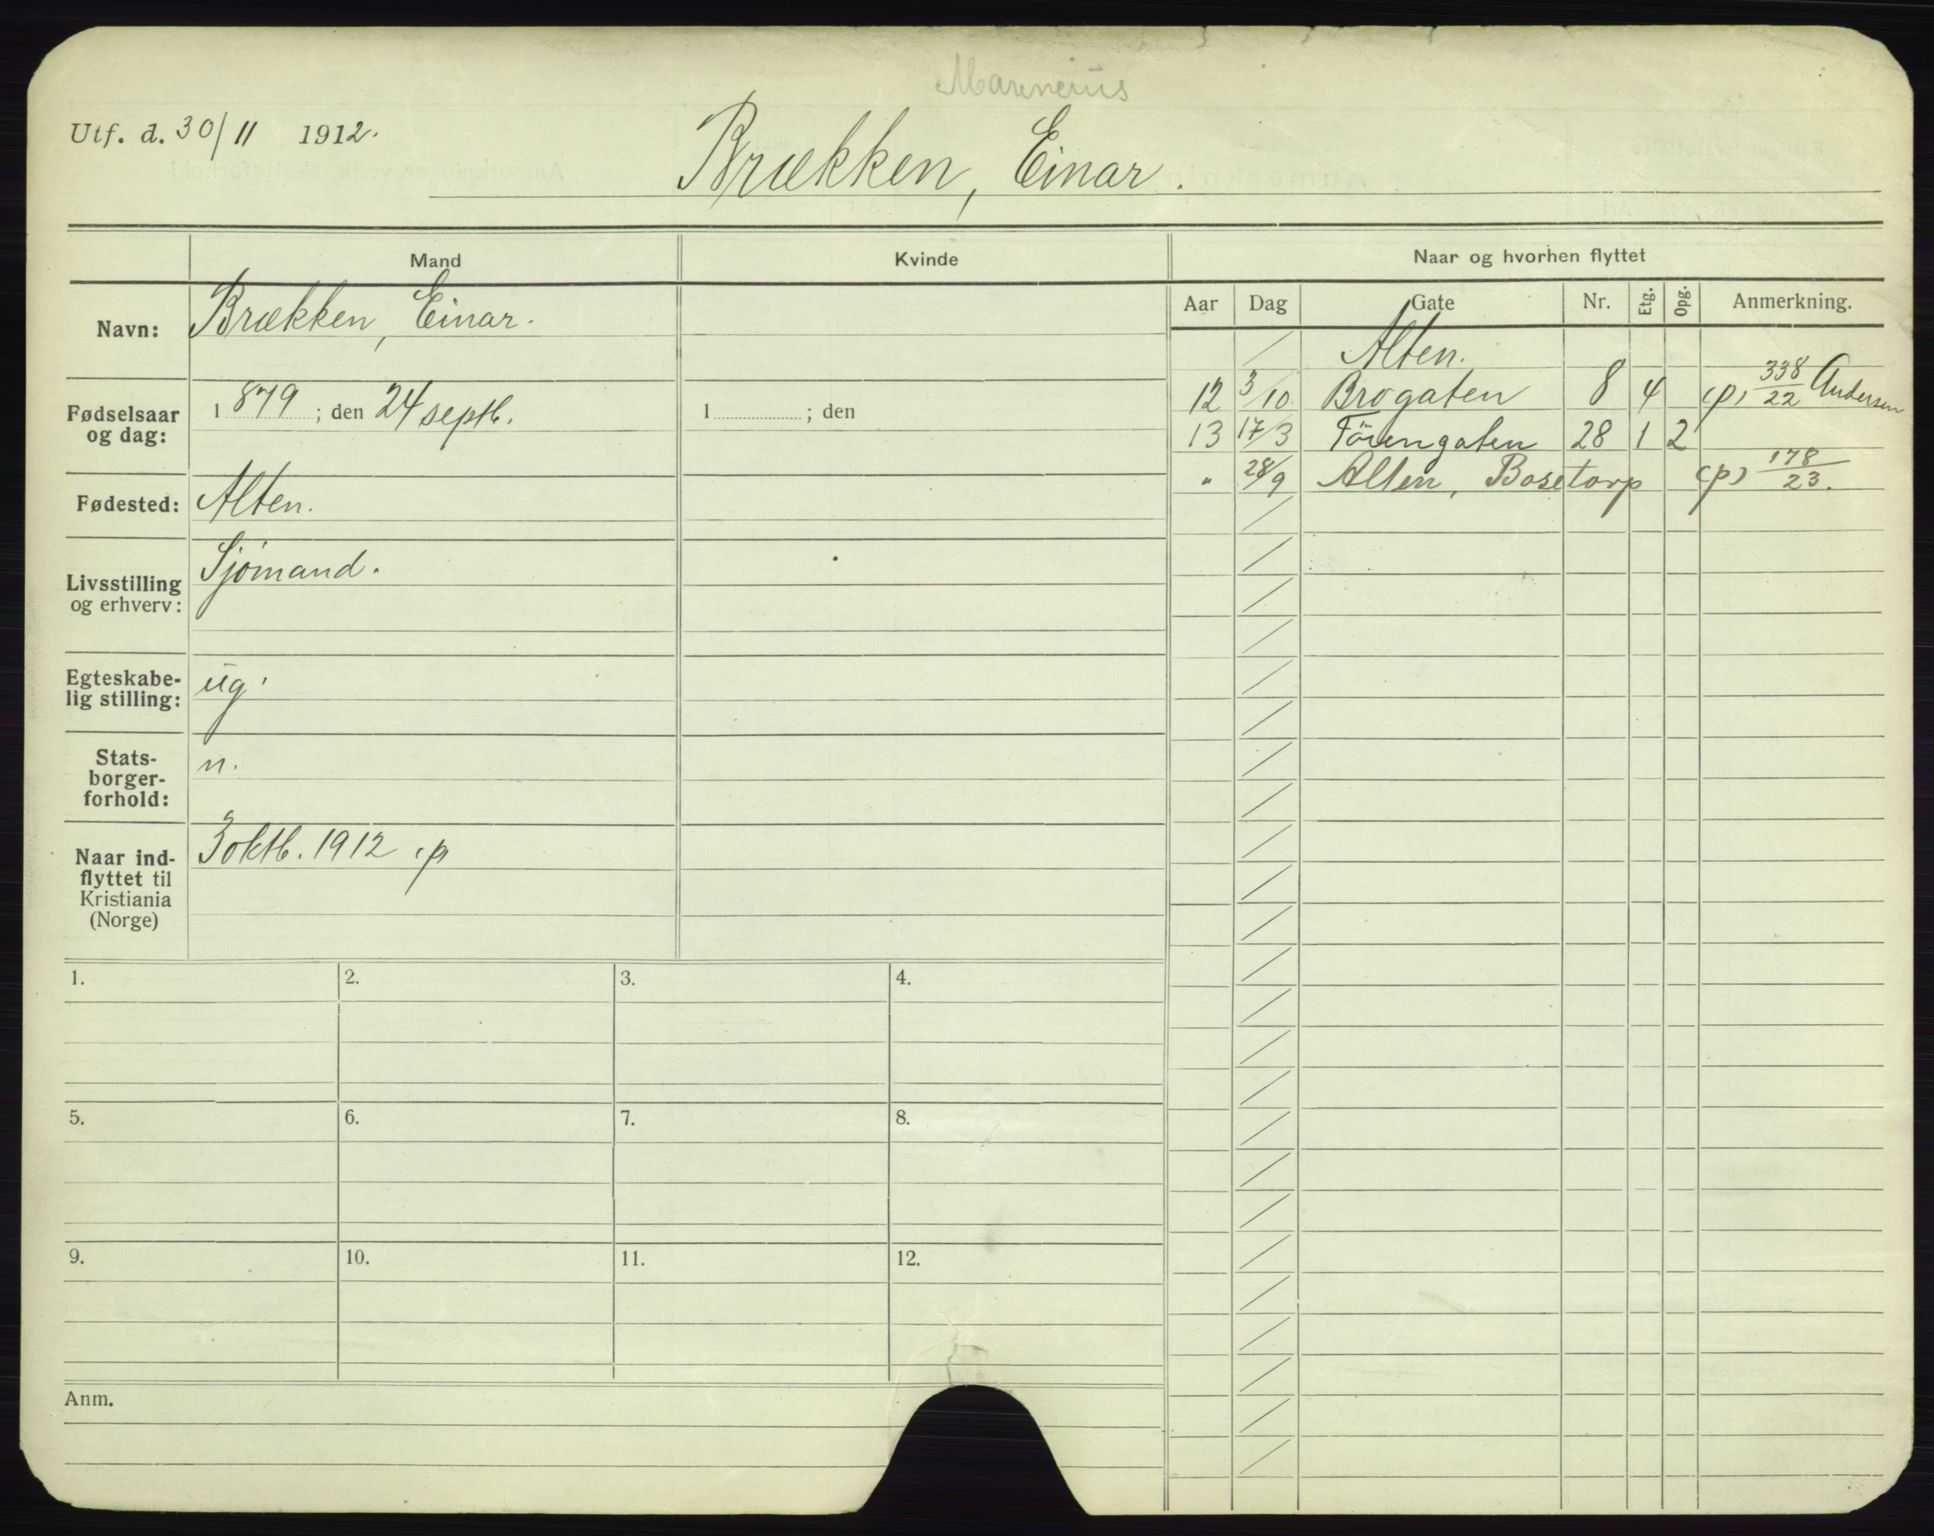 Marinerius
Utf. d. 30/11 1912.
Brækken, Einar.
Mand Kvinde Naar og hvorhen flyttet
Aar Dag Gate Nr. Etg. Opg. Anmerkning.
Navn: Brækken, Einar.
Fødselsaar og dag: 1879; den 24 septb. 1 ; den
Fødested: Alten.
Livsstilling og erhverv: Sjømand.
Egteskabe-
lig stilling: ug.
Stats-
borger-
forhold: n.
Naar ind-
flyttet til
Kristiania
(Norge) 3 oktb. 1912 p
Alten.
12 3/10 Brogaten 8 4 (p) 338/22 Andersen
13 17/3 28 1 2
" 28/9 Alten, Bosetorp (p) 178/23.
1. 2. 3. 4.
5. 6. 7. 8.
9. 10. 11. 12.
Anm.